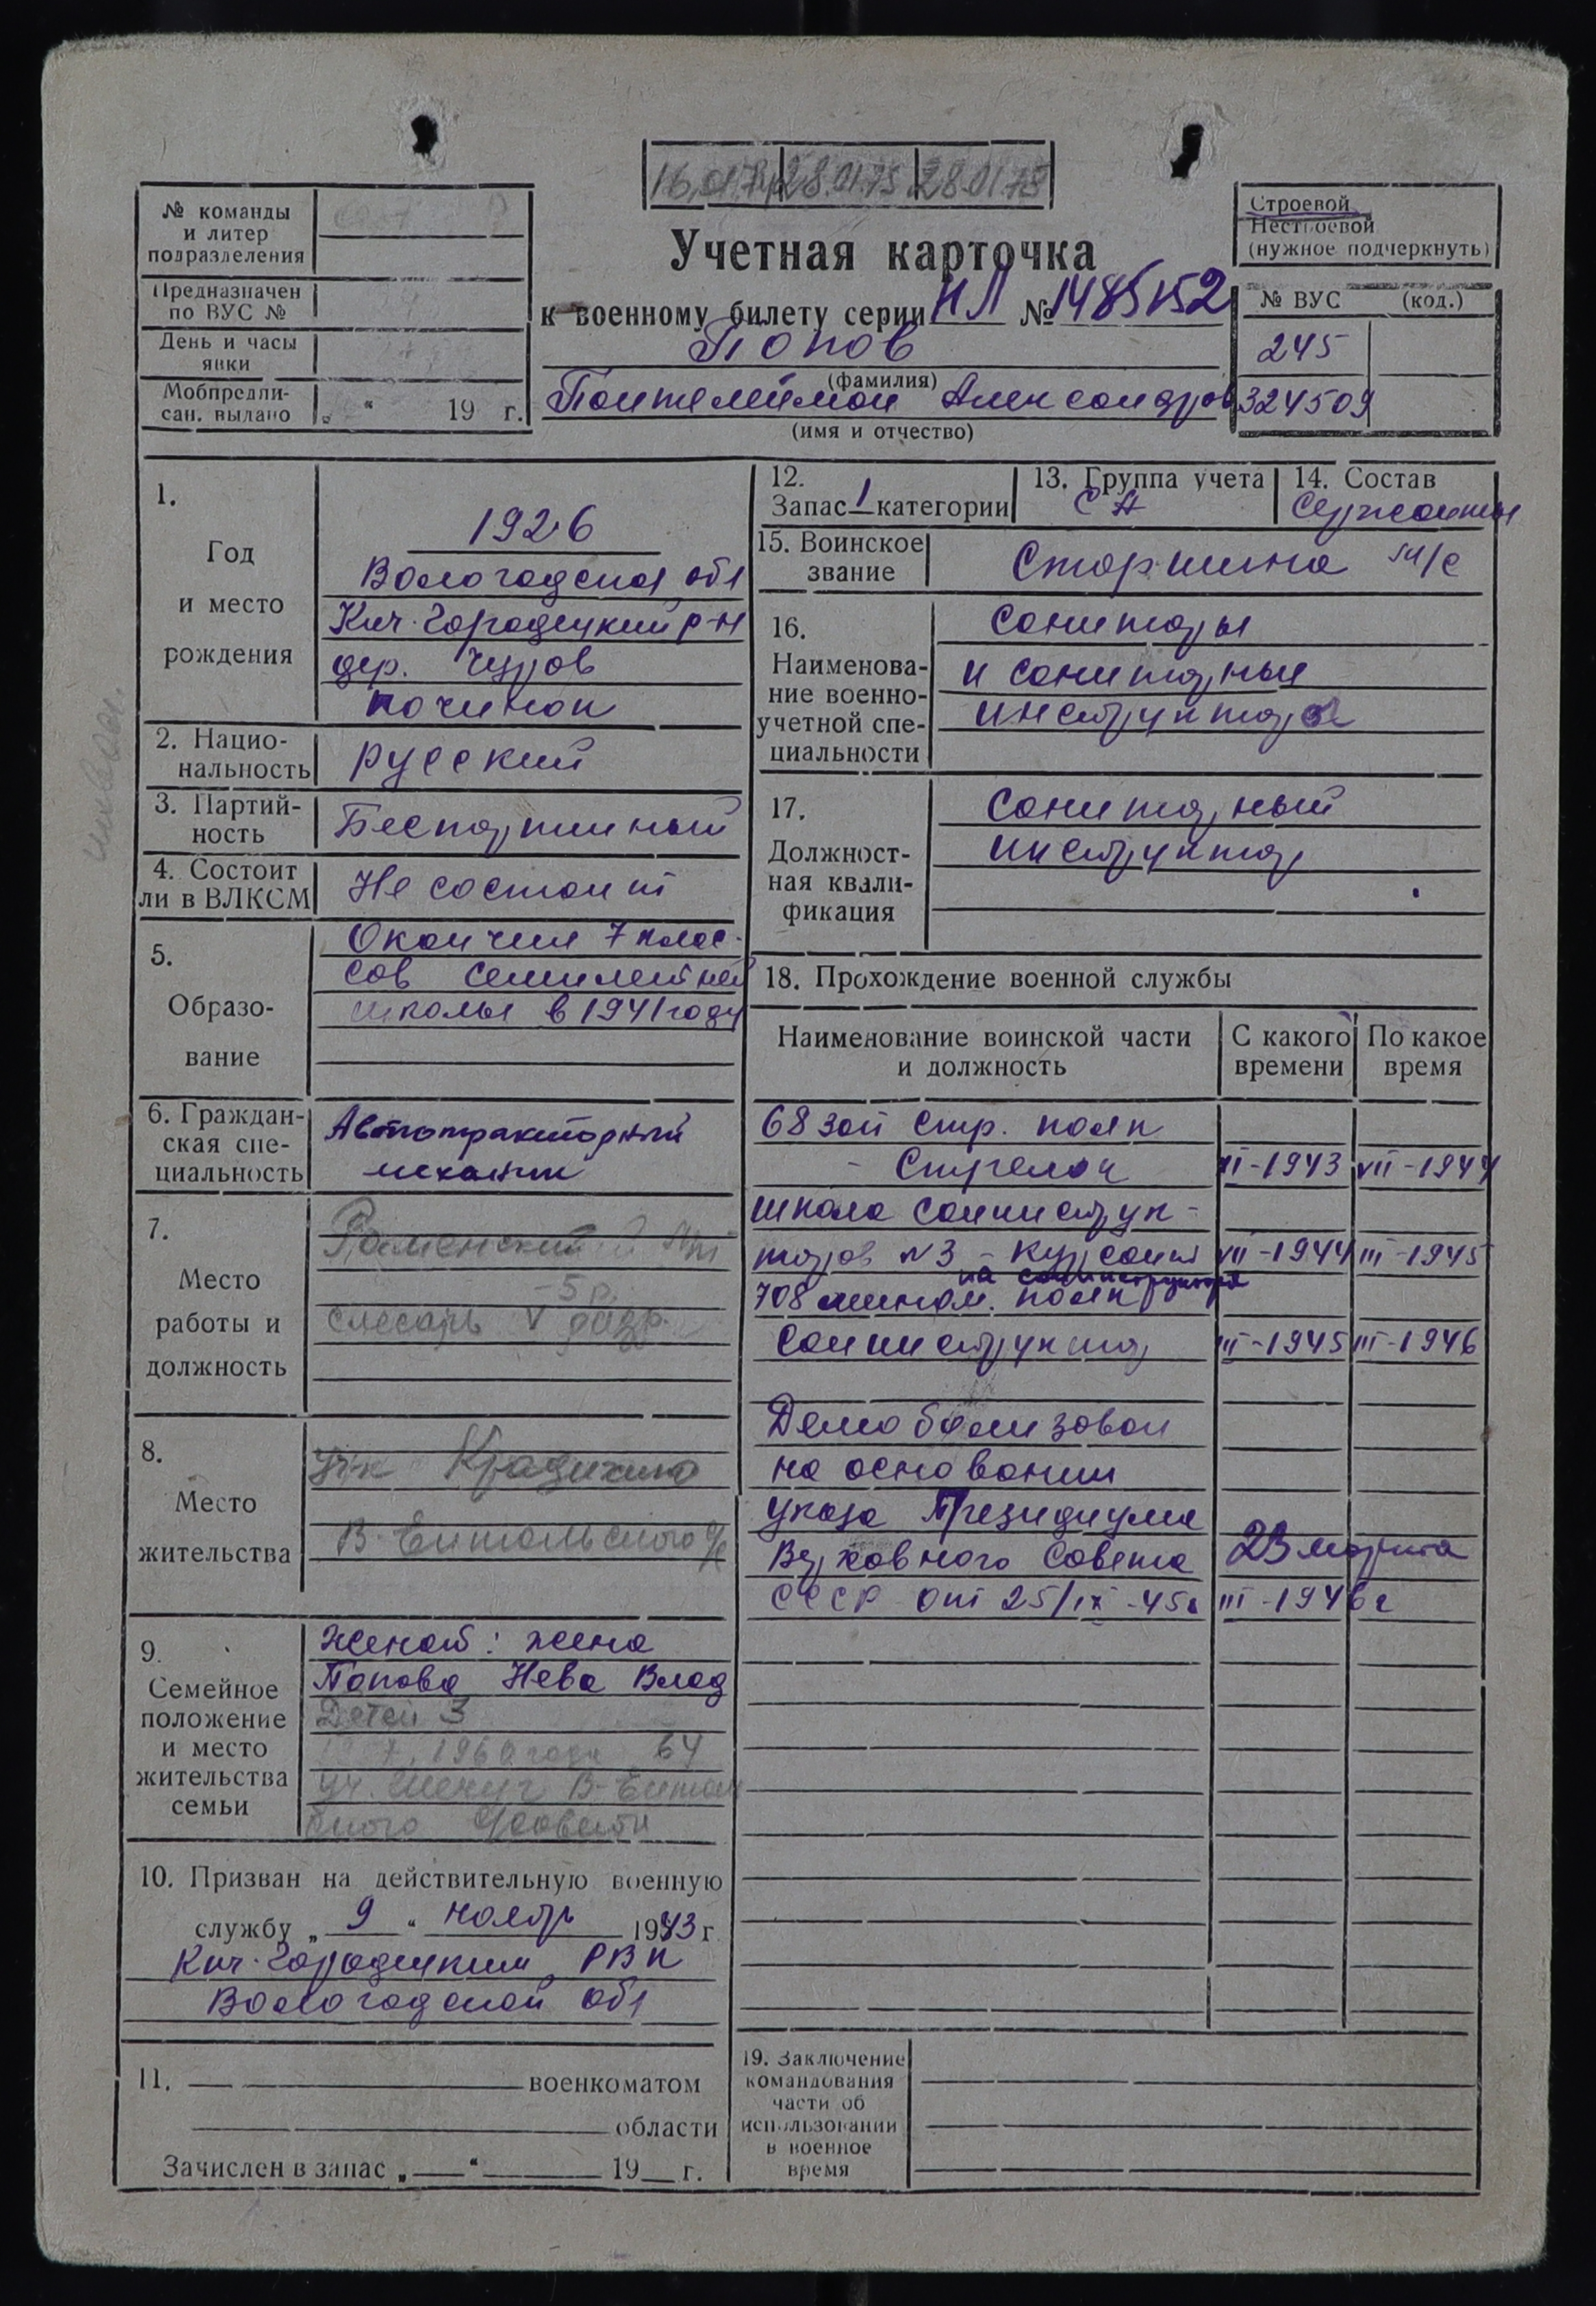 16.01.74 28.01.75 28.01.78
№ команды
и литер
подразделения
Предназначен
по ВУС №
День и часы
явки
Мобпредпи-
сан. выдано „ “ 19 г.
Учетная карточка
к военному билету серии НЛ № 1485152
Попов
(фамилия)
Пантелеймон Александров
(имя и отчество)
Строевой
Нестроевой
(нужное подчеркнуть)
№ ВУС (код.)
245
324509
1.
Год
и место
рождения
1926
Вологодская обл
Кич. Городецкий р-н
дер. Чуров
починок
2. Нацио-
нальность
русский
3. Партий-
ность
Беспартийный
4. Состоит
ли в ВЛКСМ
Не состоит
5.
Образо-
вание
Окончил 7 клас-
сов семилетней
школы в 1941 году
6. Граждан-
ская спе-
циальность
Автотракторный
механик
7.
Место
работы и
должность
Раменский
5 р.
слесарь V разр.
8.
Место
жительства
В-Ентальского с/с
9.
Семейное
положение
и место
жительства
семьи
Женат: жена
Попова Нева Влад
Детей 3
1960 года 64
уч. В-Енталь
ского с/совета
10. Призван на действительную военную
службу „ 9 “ ноябр 1943 г
Кич. Городецким РВК
Вологодской обл
11. военкоматом
области
Зачислен в запас „ “ 19 г.
12.
Запас 1 категории
13. Группа учета
СА
14. Состав
Сержанты
15. Воинское
звание
Старшина м/с
16.
Наименова-
ние военно-
учетной спе-
циальности
Санитары
и санитарные
инструктора
17.
Должност-
ная квали-
фикация
Санитарный
инструктор
18. Прохождение военной службы
Наименование воинской части
и должность
С какого
времени
По какое
время
68 зап стр. полк
- Стрелок XI-1943 VII-1944
школа санинструк-
торов №3 - курсант VII-1944 III-1945
на санинструктора
708 мином. полк
Санинструктор III-1945 III-1946
Демобилизован
на основании
указа Президиума
Верховного Совета 23 марта
СССР от 25/IX-45г III-1946г
19. Заключение
командования
части об
использовании
в военное
время